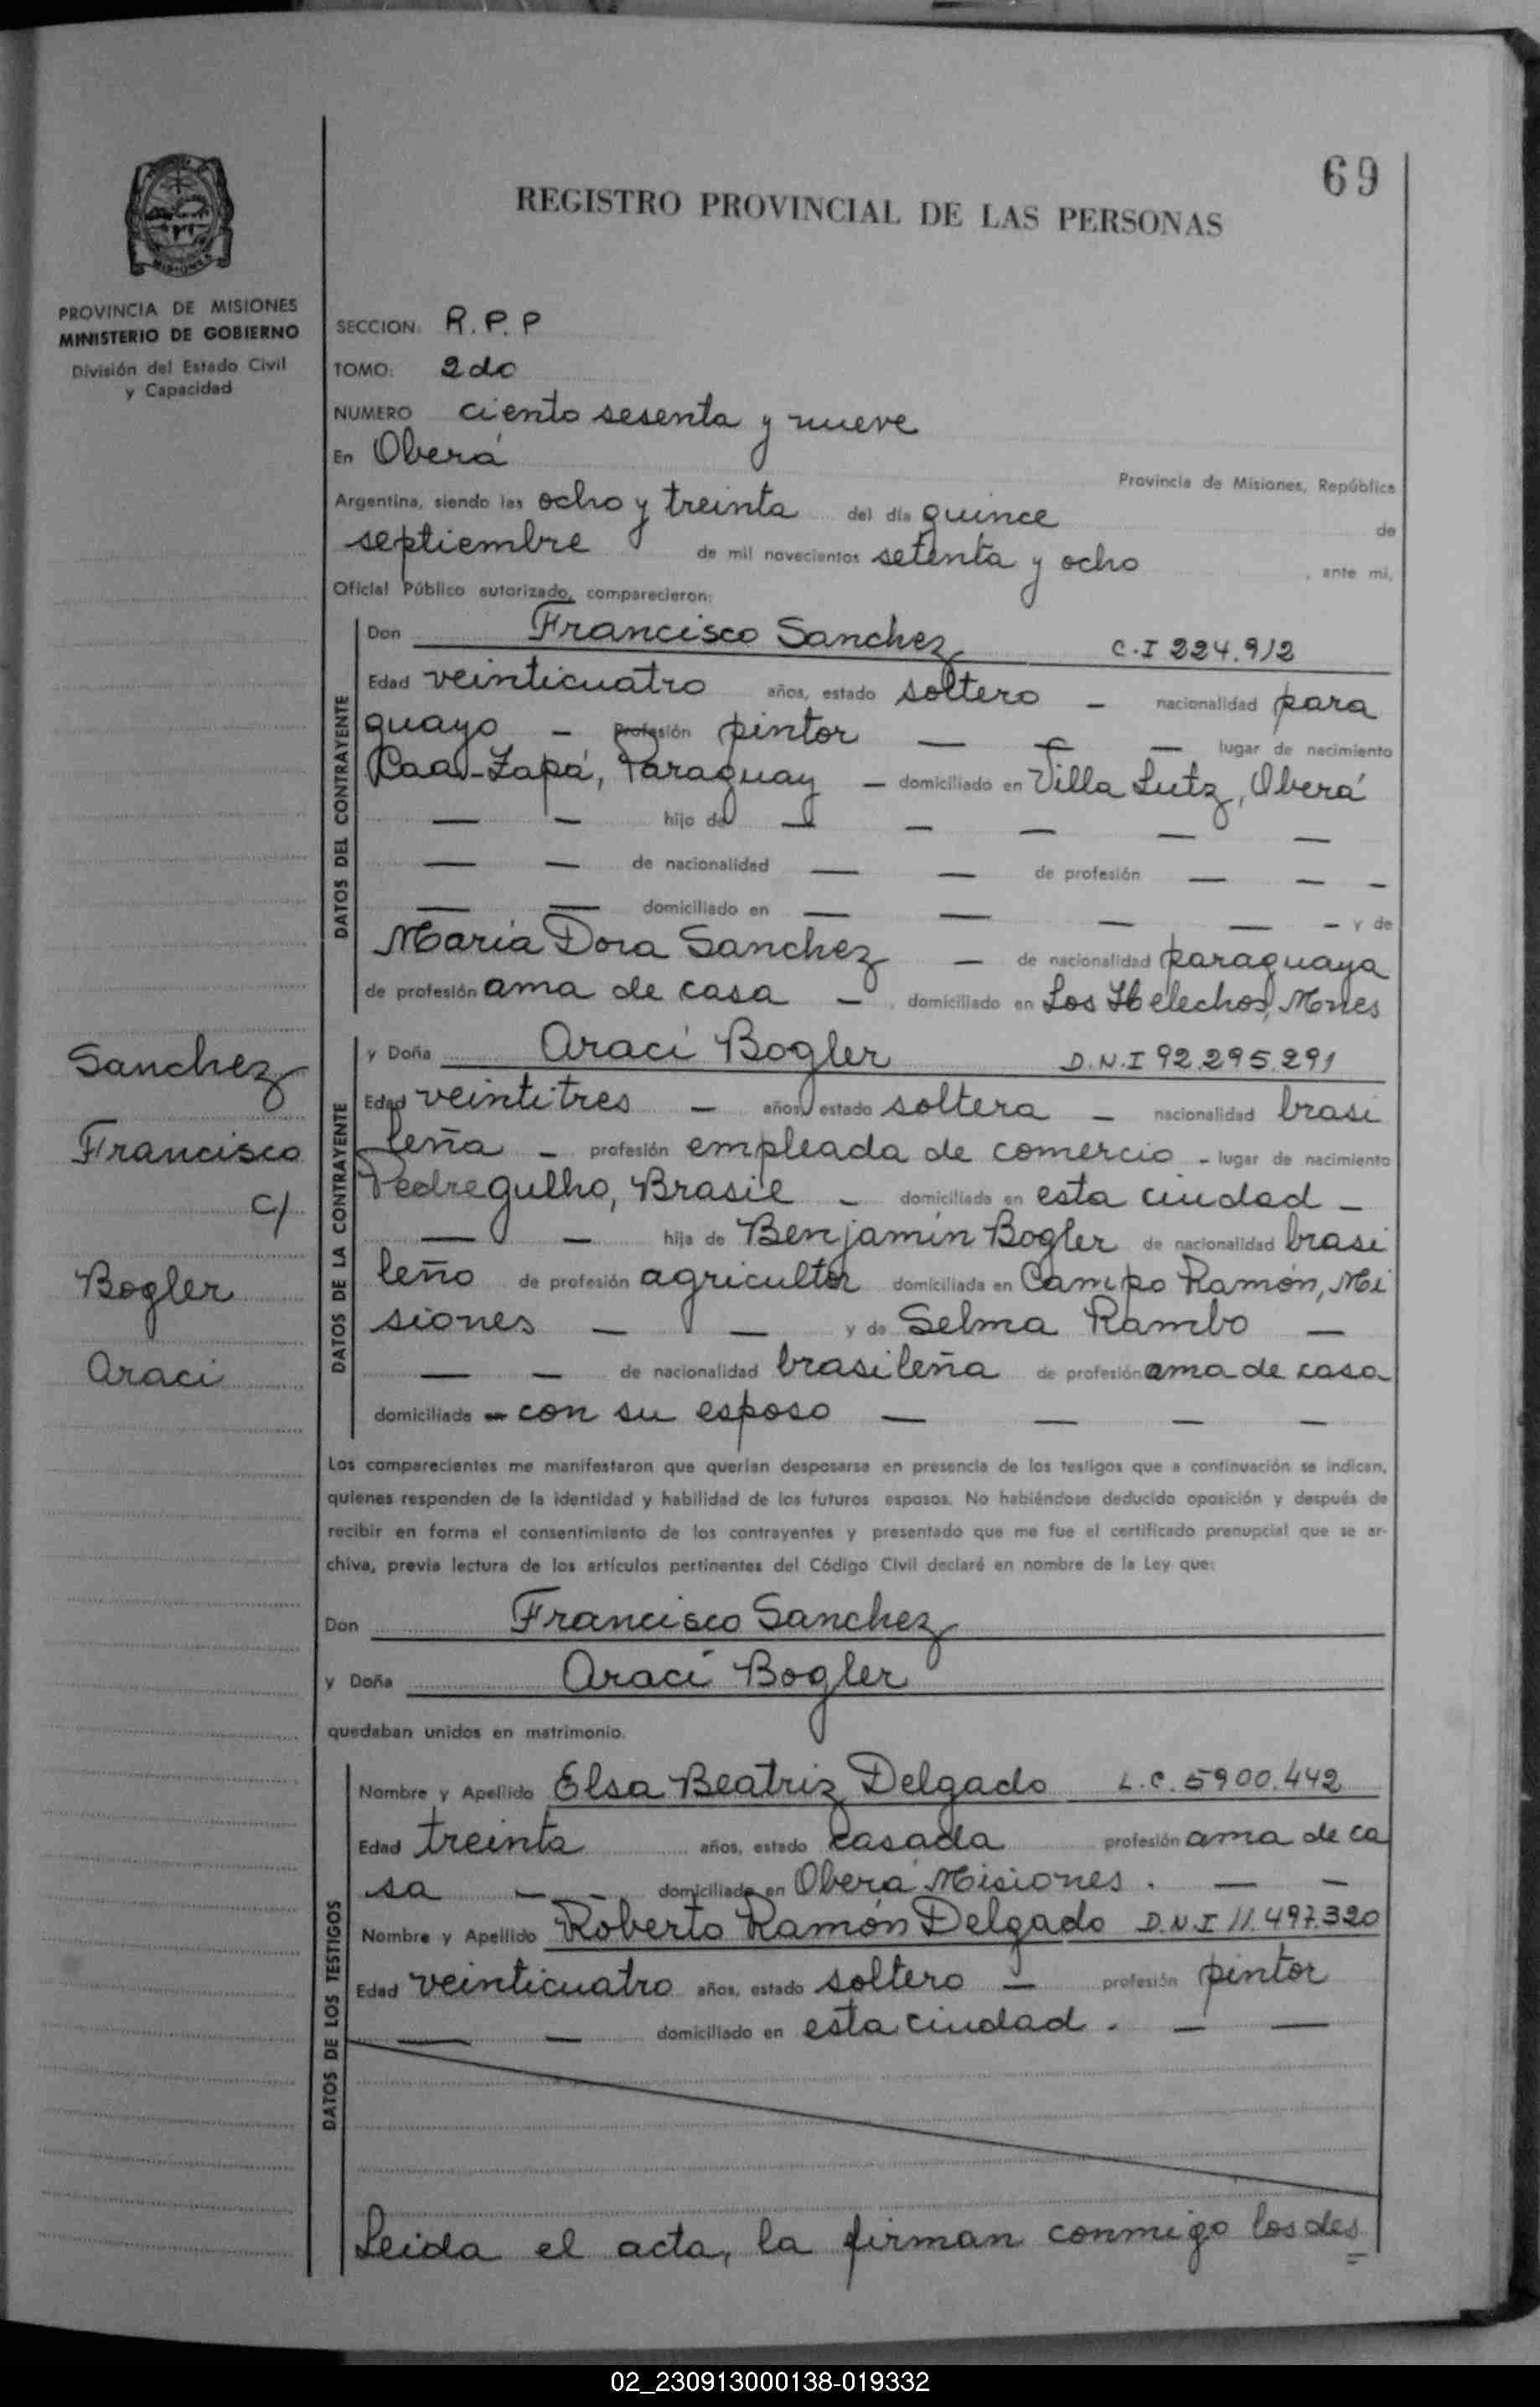 69
REGISTRO PROVINCIAL DE LAS PERSONAS
MISIONES
PROVINCIA DE MISIONES
MINISTERIO DE GOBIERNO
División del Estado Civil
y Capacidad
SECCION: R.P.P
TOMO: 2do
NUMERO ciento sesenta y nueve
En Oberá
Provincia de Misiones, República
Argentina, siendo las ocho y treinta del día quince de
septiembre de mil novecientos setenta y ocho, ante mi,
Oficial Público autorizado, comparecieron:
DATOS DEL CONTRAYENTE
Don Francisco Sanchez C.I 224.912
Edad veinticuatro años, estado soltero - nacionalidad para
guayo - Profesión pintor — — — lugar de necimiento
Caa-Zapá, Paraguay - domiciliado en Villa Lutz, Oberá
— — hijo de — — — — —
— — de nacionalidad — — de profesión — — —
— — domiciliado en — — — — — y de
María Dora Sanchez — de nacionalidad paraguaya
de profesión ama de casa —, domiciliado en Los Helechos, Mnes
DATOS DE LA CONTRAYENTE
y Doña Araci Bogler D.N.I 92.295.291
Edad veintitres — años, estado soltera — nacionalidad brasi
leña - profesión empleada de comercio - lugar de nacimiento
Pedregulho, Brasil - domiciliada en esta ciudad -
— — hija de Benjamín Bogler de nacionalidad brasi
leño de profesión agricultor domiciliada en Campo Ramón, Mi
siones — — y de Selma Rambo —
— — de nacionalidad brasileña de profesión ama de casa
domiciliada - con su esposo — — — —
Sanchez
Francisco
c/
Bogler
Araci
Los comparecientes me manifestaron que querían desposarse en presencia de los testigos que a continuación se indican,
quienes responden de la identidad y habilidad de los futuros esposos. No habiéndose deducido oposición y después de
recibir en forma el consentimiento de los contrayentes y presentado que me fue el certificado prenupcial que se ar-
chiva, previa lectura de los artículos pertinentes del Código Civil declaré en nombre de la Ley que:
Don Francisco Sanchez
y Doña Araci Bogler
quedaban unidos en matrimonio.
DATOS DE LOS TESTIGOS
Nombre y Apellido Elsa Beatriz Delgado L.C. 5900.442
Edad treinta años, estado casada profesión ama de ca
sa — - domiciliada en Oberá Misiones. — —
Nombre y Apellido Roberto Ramón Delgado D.N.I 11.497.320
Edad veinticuatro años, estado soltero — profesión pintor
— — domiciliado en esta ciudad. — —
Leida el acta, la firman conmigo los des
02_230913000138-019332